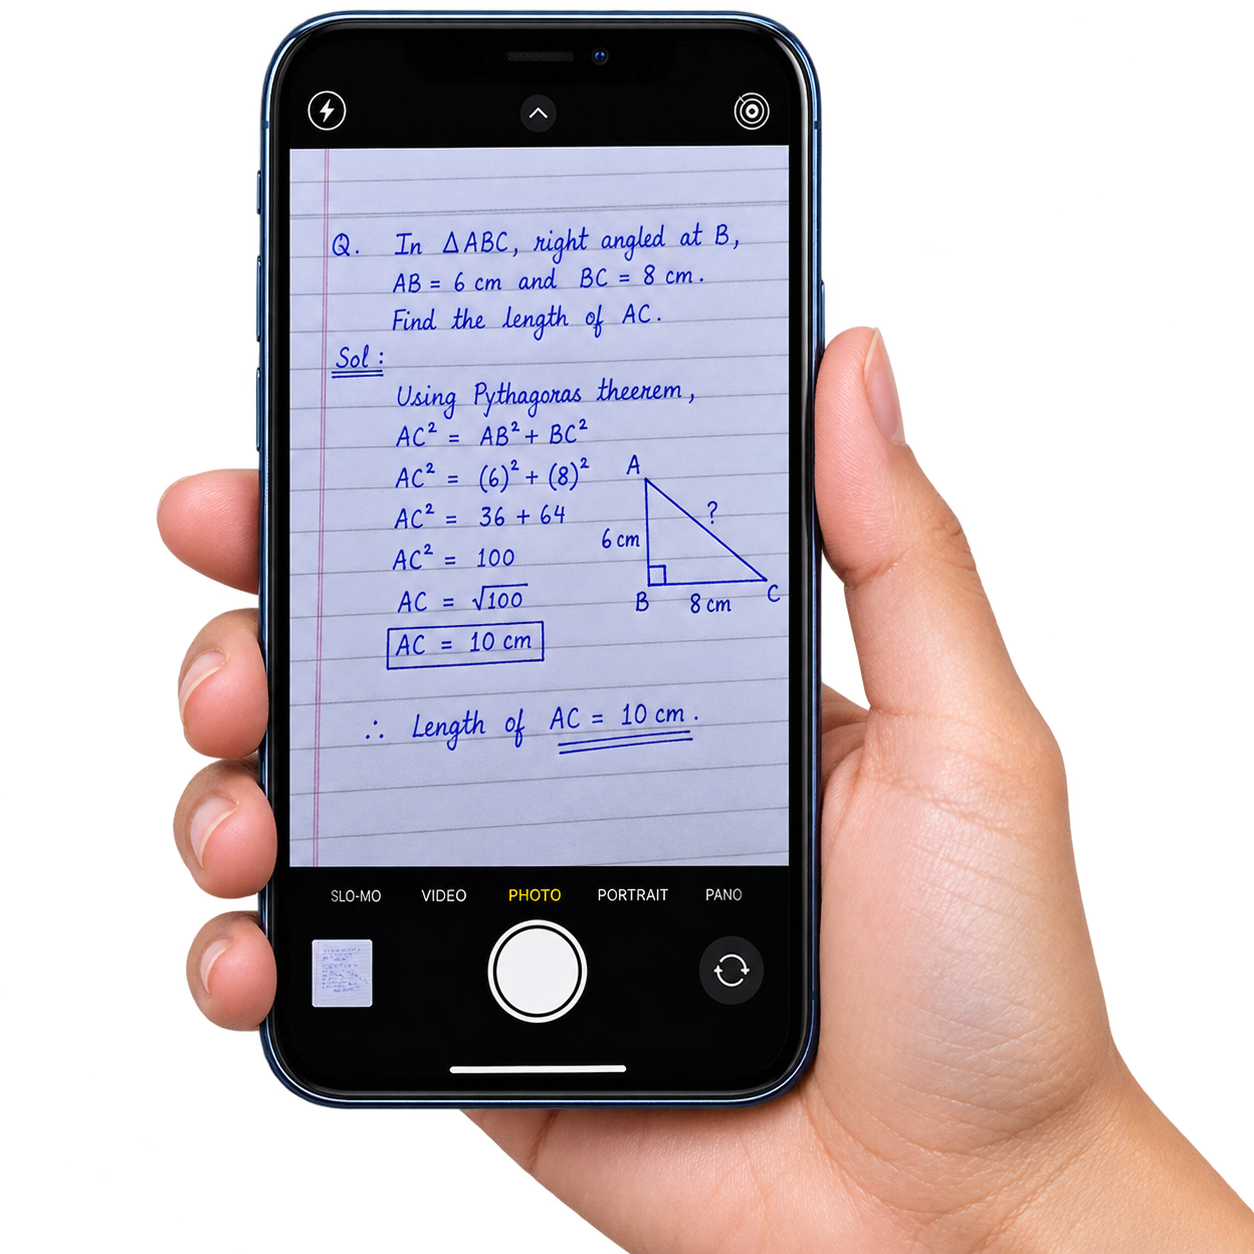 Q. In ΔABC, right angled at B,
AB = 6 cm and BC = 8 cm.
Find the length of AC.
Sol:
Using Pythagoras theerem,
AC² = AB² + BC²
AC² = (6)² + (8)²
AC² = 36 + 64
AC² = 100
AC = √100
AC = 10 cm
A
?
6 cm
B
8 cm
C
∴ Length of AC = 10 cm.
SLO-MO VIDEO PHOTO PORTRAIT PANO